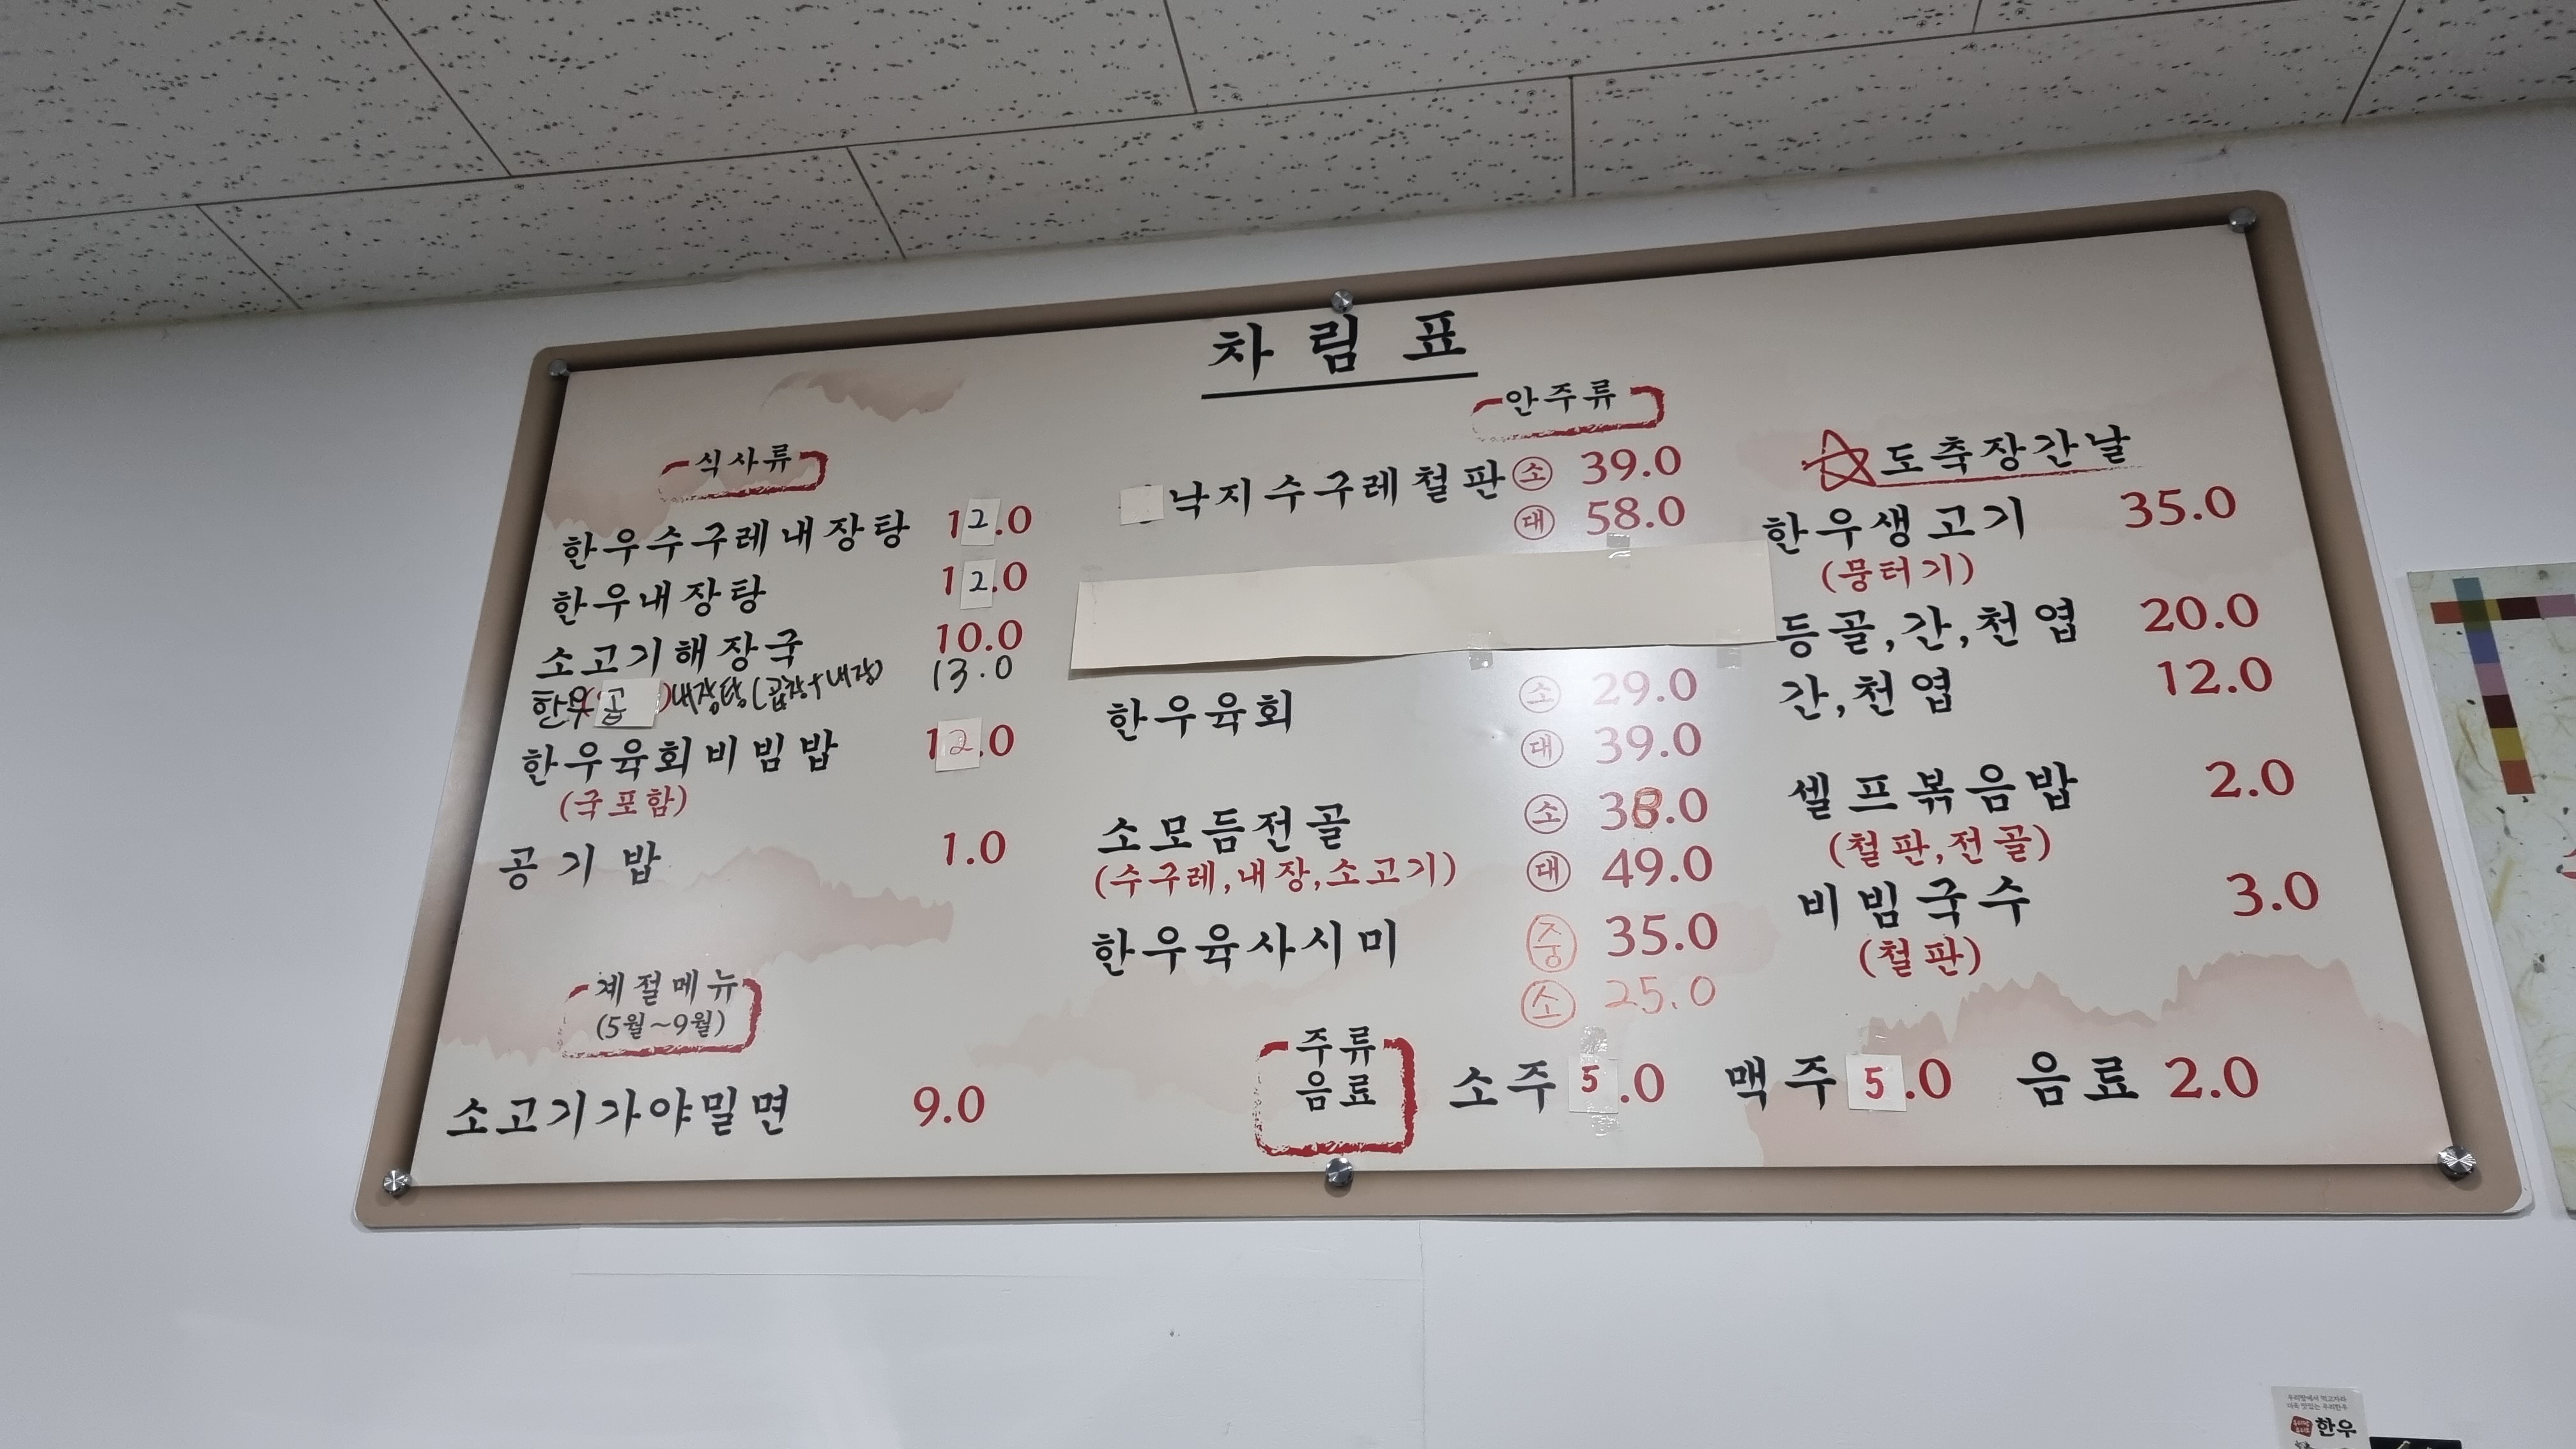 차림표
식사류
한우수구레내장탕 12.0
한우내장탕 12.0
소고기해장국 10.0
한우(곱)내장탕(곱창+내장) 13.0
한우육회비빔밥 12.0
(국포함)
공기밥 1.0
계절메뉴
(5월~9월)
소고기가야밀면 9.0
안주류
낙지수구레철판 소 39.0
대 58.0
한우육회 소 29.0
대 39.0
소모듬전골 소 38.0
(수구레,내장,소고기) 대 49.0
한우육사시미 중 35.0
소 25.0
☆도축장간날
한우생고기 35.0
(뭉터기)
등골,간,천엽 20.0
간,천엽 12.0
셀프볶음밥 2.0
(철판,전골)
비빔국수 3.0
(철판)
주류
음료
소주 5.0 맥주 5.0 음료 2.0
한우